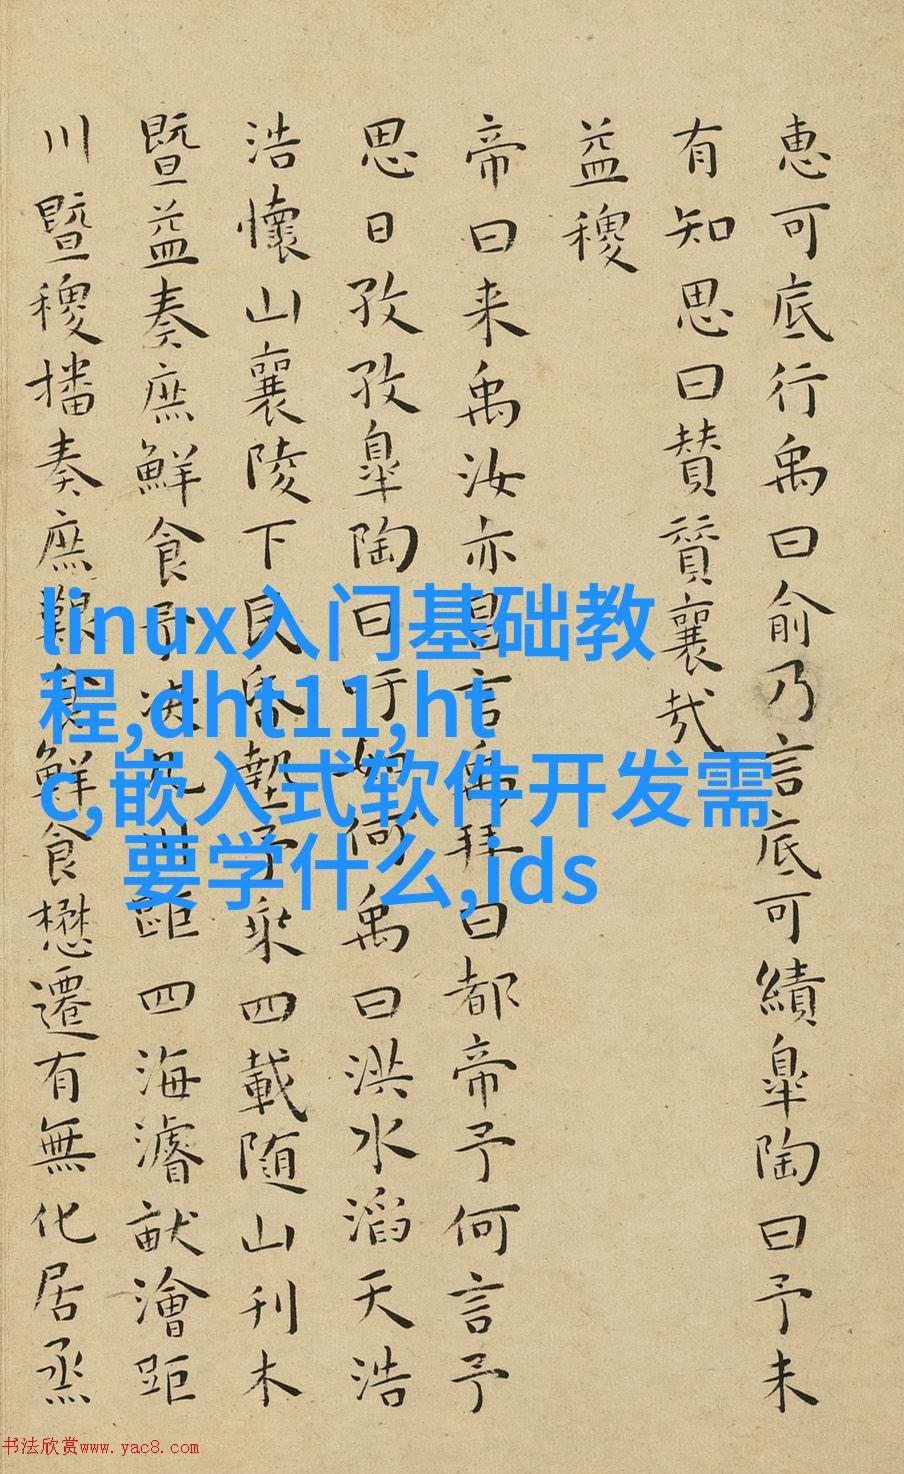 惠可底行禹曰俞乃言底可績皐陶曰予未
有知思曰賛賛襄哉
益稷
帝曰来禹汝亦昌言禹拜曰都帝予何言予
思日孜孜皐陶曰吁如何禹曰洪水滔天浩
浩懷山襄陵下民昏墊予乘四載随山刊木
暨益奏庶鮮食予决九川距四海濬畎澮距
川暨稷播奏庶艱食鮮食懋遷有無化居烝
linux入门基础教
程,dht11,ht
c,嵌入式软件开发需
要学什么,jds
书法欣赏www.yac8.com